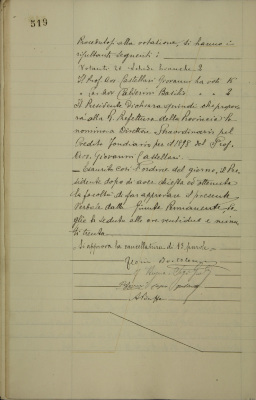 519
Procedutosi alla votazione, si hanno i
risultati seguenti:
Votanti 20 - Schede bianche 2
Il Prof. Avv. Castellari Giovanni ha voti 15
" Cav. Avv. " 2
Il Presidente dichiara quindi che propor
rà alla R. Prefettura della Provincia la
nomina a Direttore Straordinario pel
Credito Fondiario per il 1898 del Prof.
Avv. Giovanni Castellari.
Esaurito così l'ordine del giorno, il Pre
sidente dopo di aver chiesta ed ottenuta
la facoltà di far approvare il presente
Verbale dalla Giunta Permanente, to
glie la seduta alle ore ventidue e minu
ti trenta.
Si approva la cancellatura di 13 parole.